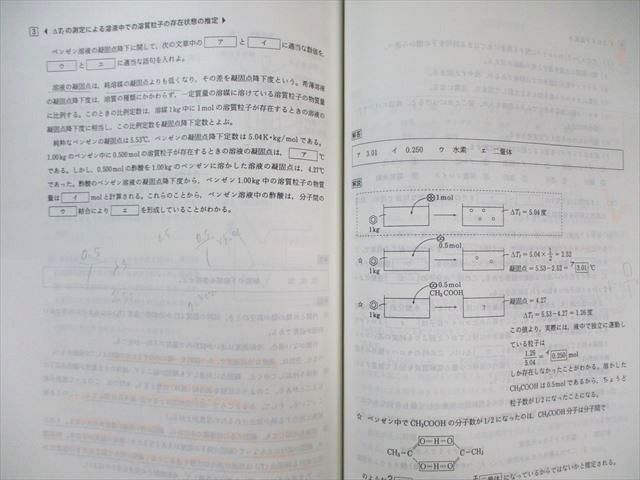 3 ◀ ΔTfの測定による溶液中での溶質粒子の存在状態の推定 ▶
ベンゼン溶液の凝固点降下に関して，次の文章中の ア と イ に適当な数値を，
ウ と エ に適当な語句を入れよ。
溶液の凝固点は，純溶媒の凝固点よりも低くなり，その差を凝固点降下度という。希薄溶液
の凝固点降下度は，溶質の種類にかかわらず，一定質量の溶媒に溶けている溶質粒子の物質量
に比例する。このときの比例定数は，溶媒1kg中に1molの溶質粒子が存在するときの溶液の
凝固点降下度に相当し，この比例定数を凝固点降下定数とよぶ。
純粋なベンゼンの凝固点は5.53℃，ベンゼンの凝固点降下定数は5.04K・kg/molである。
1.00kgのベンゼン中に0.500molの溶質粒子が存在するときの溶液の凝固点は， ア ℃
である。しかし，0.500molの酢酸を1.00kgのベンゼンに溶かした溶液の凝固点は，4.27℃
であった。酢酸のベンゼン溶液の凝固点降下度から，ベンゼン1.00kg中の溶質粒子の物質
量は イ molと計算される。これらのことから，ベンゼン溶液中の酢酸は，分子間の
ウ 結合により エ を形成していることがわかる。
解答
ア 3.01 イ 0.250 ウ 水素 エ 二量体
解説
1mol
1kg
ΔTf = 5.04度
☆
0.5mol
1kg
ΔTf = 5.04 × 1/2 = 2.52
凝固点 = 5.53−2.52 = ア 3.01 ℃
☆
0.5mol
CH3COOH
1kg
?
凝固点 = 4.27
ΔTf = 5.53−4.27 = 1.26度
この値より，実際には，液中で独立に運動し
ている粒子は
1.26/5.04 = イ 0.250 mol
しか存在しなかったことがわかる。溶かした
CH3COOHは0.5molであるから，ちょうど
粒子数が1/2になったことになる。
☆ ベンゼン中でCH3COOHの分子数が1/2になったのは，CH3COOH分子は分子間で
O H O
CH3−C C−CH3
O H O
になっているからではないかと推定される。